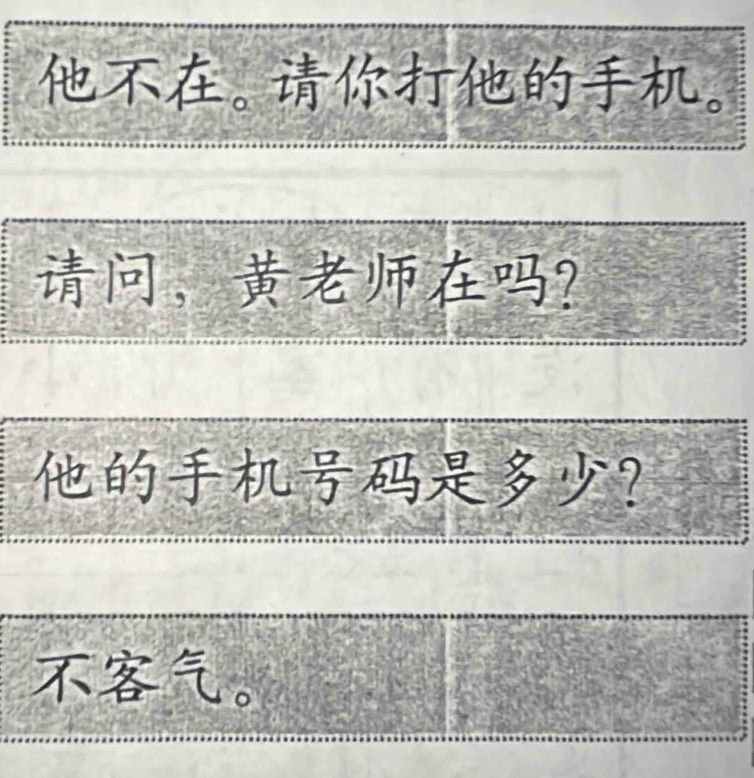 他不在。请你打他的手机。
请问，黄老师在吗？
他的手机号码是多少？
不客气。